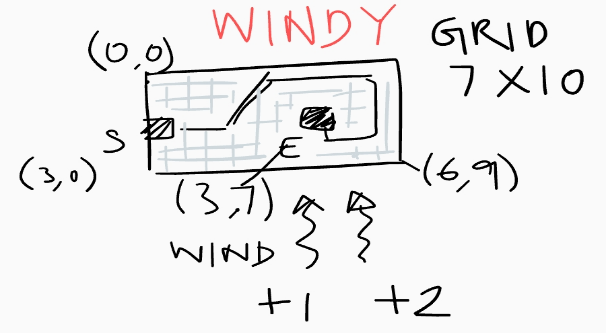 WINDY
GRID
7 X 10
(0,0)
S
E
(3,0)
(3,7)
(6,9)
WIND
+1 +2